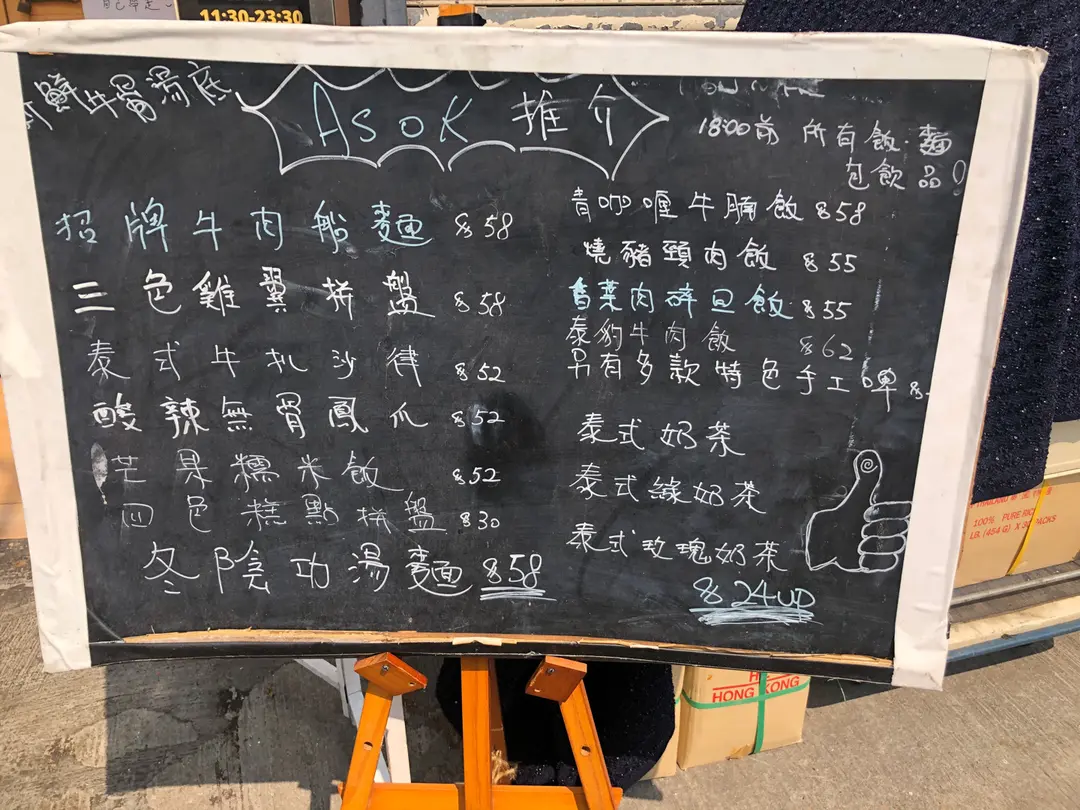 11:30-23:30
牛骨湯底
ASOK 推介
18:00前 所有飯.麵
包飲品!
招牌牛肉船麵 $58
三色雞翼拼盤 $58
泰式牛扒沙律 $52
酸辣無骨鳳爪 $52
芒果糯米飯 $52
四色糕點拼盤 $30
冬陰功湯麵 $58
青咖喱牛腩飯 $58
燒豬頸肉飯 $55
香葉肉碎旦飯 $55
泰豹牛肉飯 $62
另有多款特色手工啤 $
泰式奶茶
泰式綠奶茶
泰式玫瑰奶茶
$24up
THAILAND
100% PURE RICE
LB. (454 G) X 30 PACKS
HONG KONG